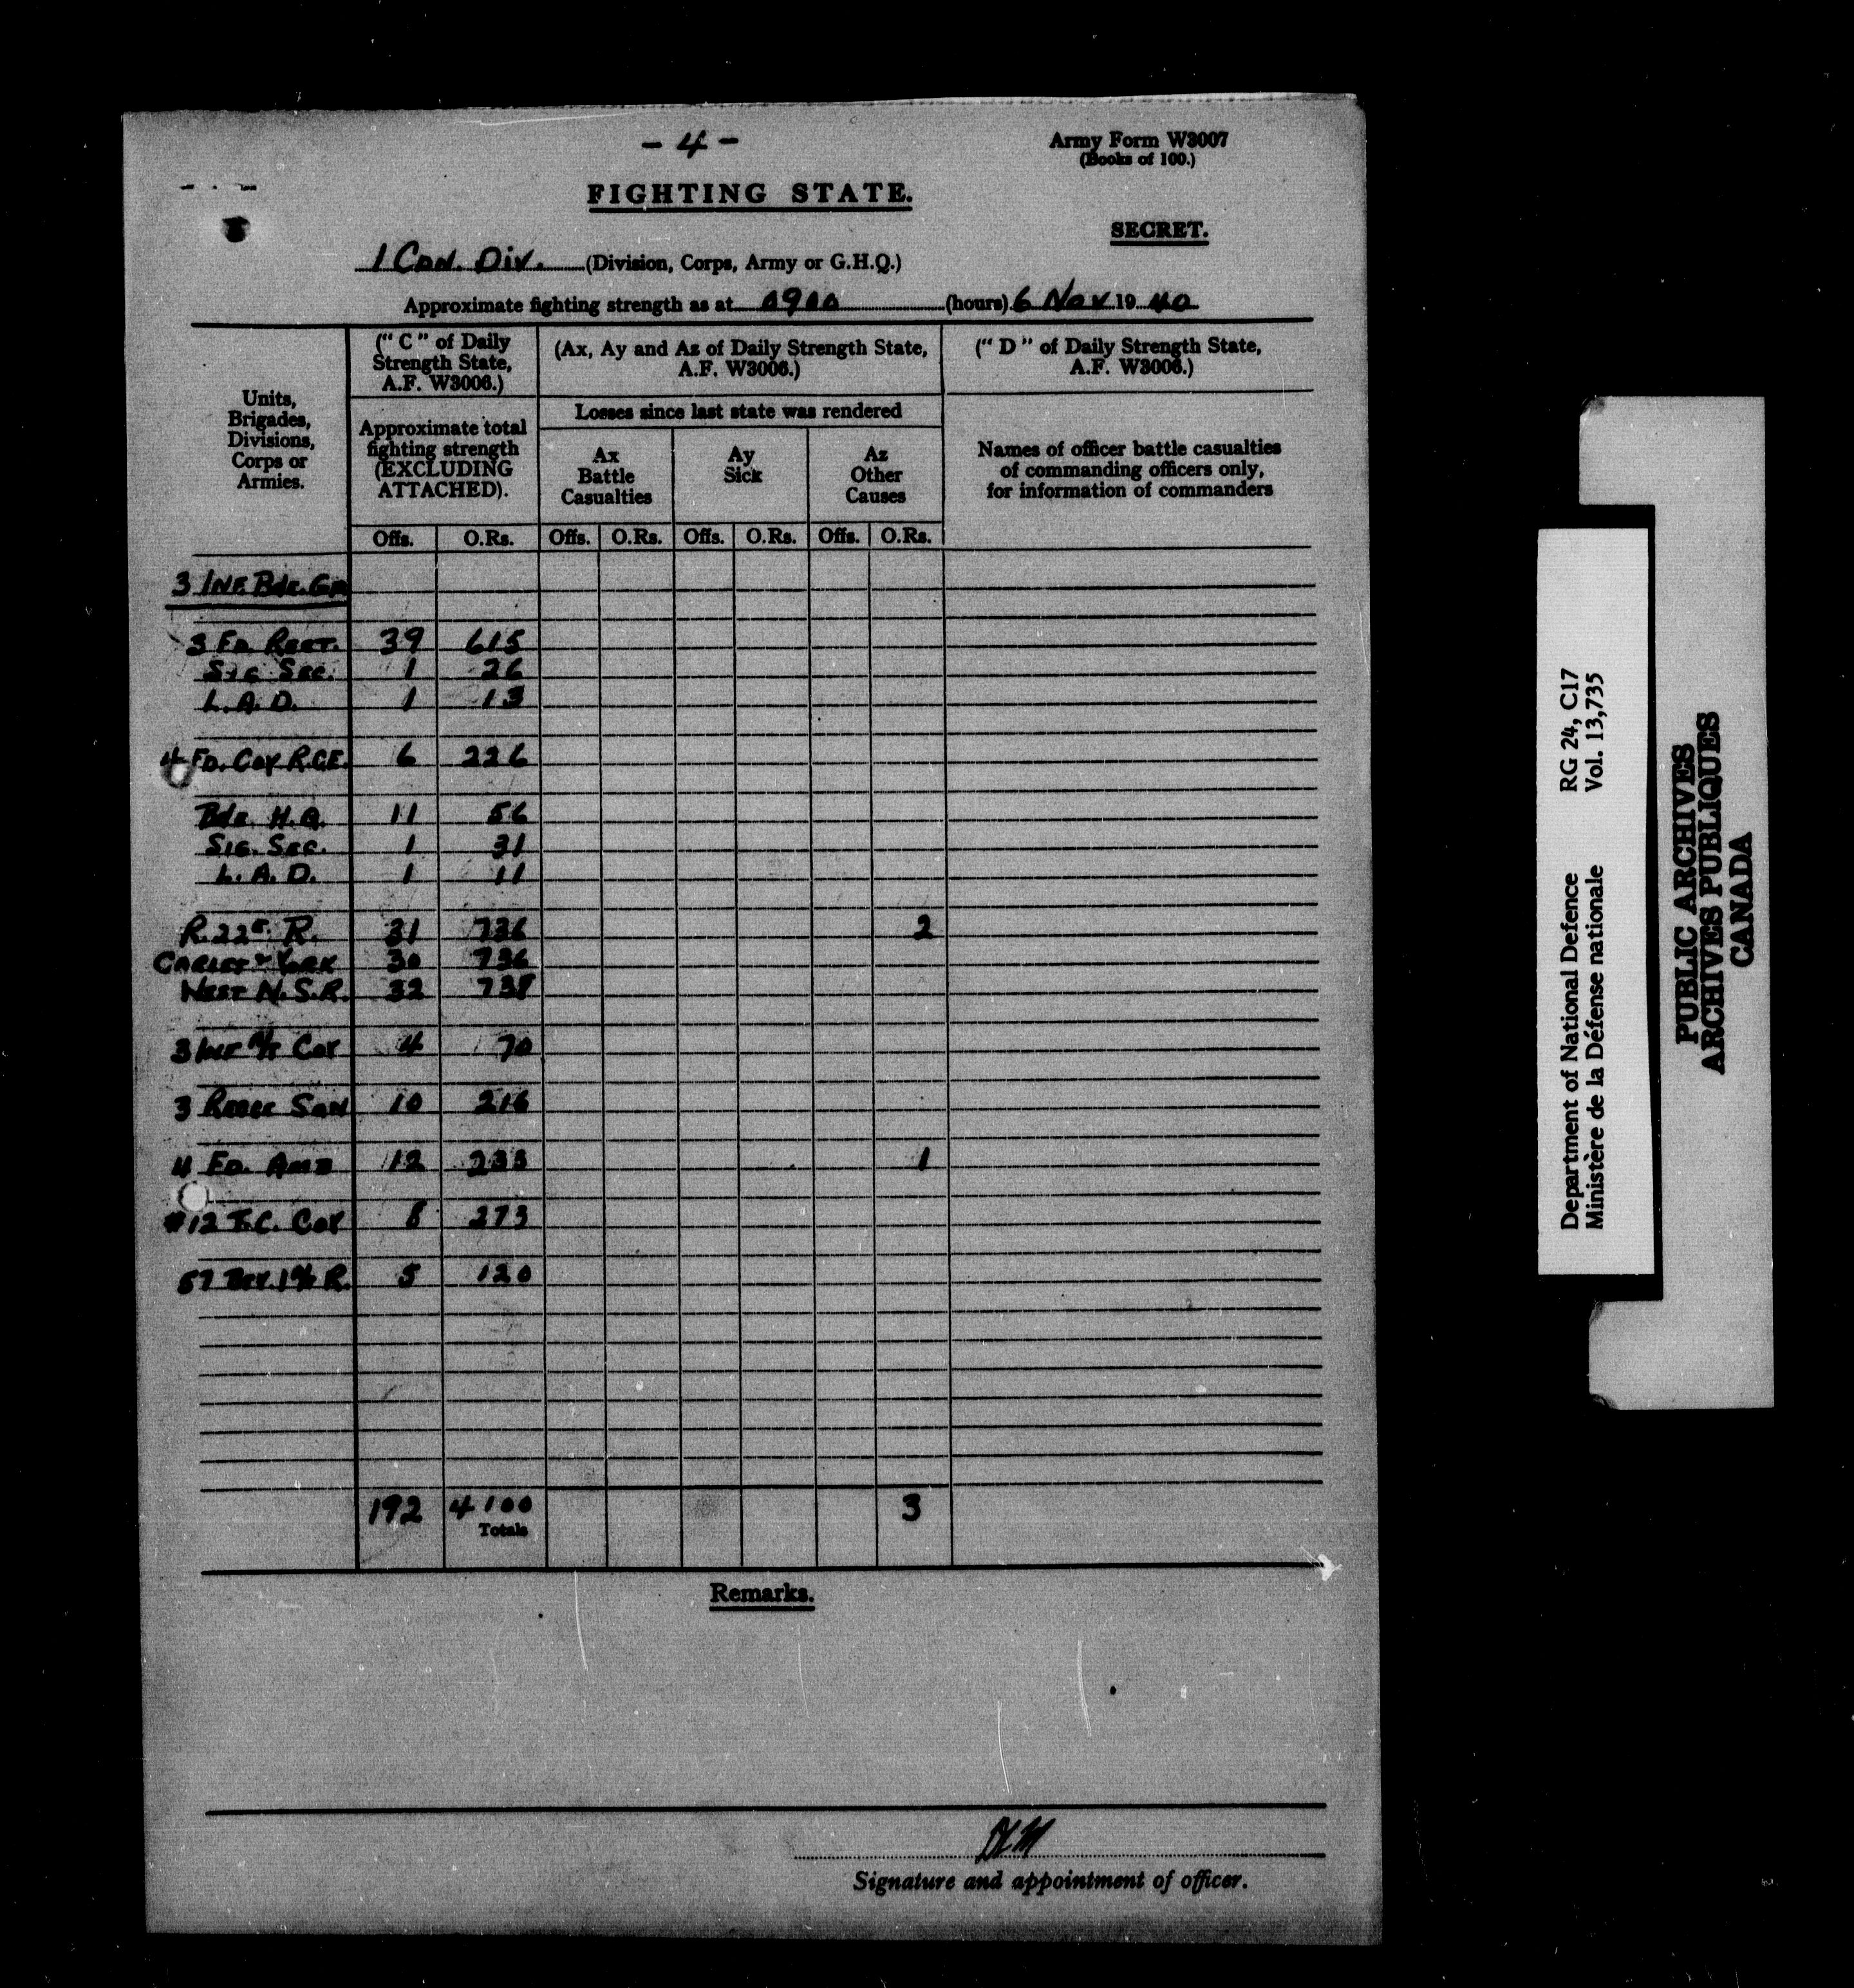 - 4 -
Army Form W3007
(Books of 100.)
FIGHTING STATE.
SECRET.
1 CDN. DIV. (Division, Corps, Army or G.H.Q.)
Approximate fighting strength as at 0900 (hours) 6 Nov 19 40
Units, Brigades, Divisions, Corps or Armies.
("C" of Daily Strength State, A.F. W3006.)
(Ax, Ay and Az of Daily Strength State, A.F. W3006.)
("D" of Daily Strength State, A.F. W3006.)
Approximate total fighting strength (EXCLUDING ATTACHED).
Losses since last state was rendered
Ax Battle Casualties
Ay Sick
Az Other Causes
Names of officer battle casualties of commanding officers only, for information of commanders
Offs. O.Rs. Offs. O.Rs. Offs. O.Rs. Offs. O.Rs.
3 INF. Bde. GP
3 FD. REGT. 39 615
SIG SEC. 1 26
L.A.D. 1 13
4 FD. COY R.C.E. 6 226
Bde. H.Q. 11 56
SIG. SEC. 1 31
L.A.D. 1 11
R. 22e R. 31 736 2
CARLET & YORK 30 736
WEST N.S.R. 32 738
3 INF A/T COY 4 70
3 RECCE SQN 10 216
4 FD. AMB 12 233 1
#12 F.C. COY 8 273
57 BTY. 1 A/T R. 5 120
192 4100 3
Totals
Remarks.
Signature and appointment of officer.
Department of National Defence RG 24, C17
Ministère de la Défense nationale Vol. 13,735
PUBLIC ARCHIVES
ARCHIVES PUBLIQUES
CANADA